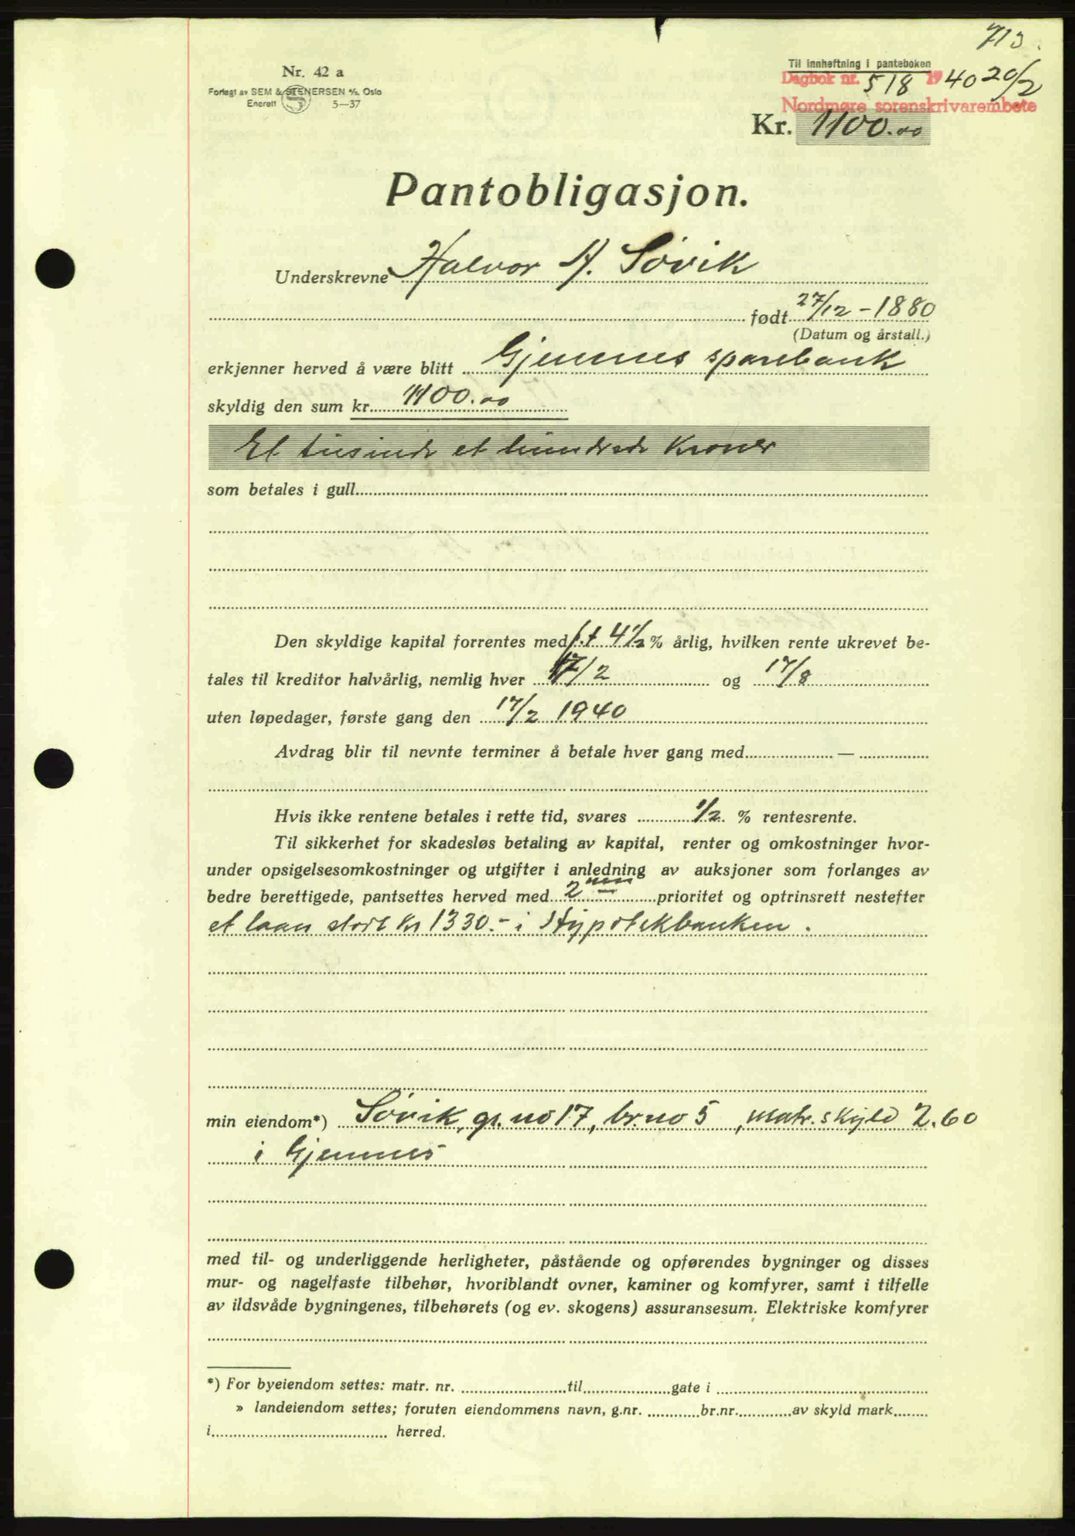 713.
Nr. 42 a
Forlagt av SEM & STENERSEN A/S, Oslo
Enerett 5—37
Til innheftning i panteboken
Dagbok nr. 518 1940 20/2
Nordmøre sorenskrivarembete
Kr. 1100.00
Pantobligasjon.
Underskrevne Halvor H. Søvik
født 27/12 - 1880
(Datum og årstall.)
erkjenner herved å være blitt Gjemnes sparebank
skyldig den sum kr. 1100.00
Et tusinde et hundrede kroner
som betales i gull
Den skyldige kapital forrentes med f.t 4 1/2 % årlig, hvilken rente ukrevet be-
tales til kreditor halvårlig, nemlig hver 17/2 og 17/8
uten løpedager, første gang den 17/2 1940
Avdrag blir til nevnte terminer å betale hver gang med —
Hvis ikke rentene betales i rette tid, svares 1/2 % rentesrente.
Til sikkerhet for skadesløs betaling av kapital, renter og omkostninger hvor-
under opsigelsesomkostninger og utgifter i anledning av auksjoner som forlanges av
bedre berettigede, pantsettes herved med 2nen prioritet og optrinsrett nestefter
et laan stort kr 1330.- i Hypotekbanken.
min eiendom*) Søvik, gr. no 17, br. no 5, matr. skyld 2.60
i Gjemnes
med til- og underliggende herligheter, påstående og opførendes bygninger og disses
mur- og nagelfaste tilbehør, hvoriblandt ovner, kaminer og komfyrer, samt i tilfelle
av ildsvåde bygningenes, tilbehørets (og ev. skogens) assuransesum. Elektriske komfyrer
*) For byeiendom settes: matr. nr. til gate i
» landeiendom settes; foruten eiendommens navn, g.nr. br.nr. av skyld mark
i herred.